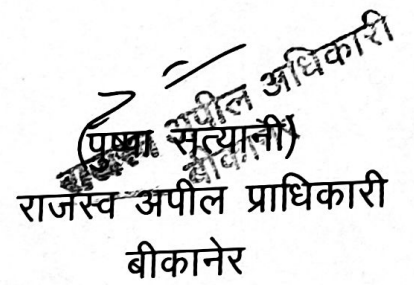 राजस्व अपील अधिकारी
बीकानेर
(पुष्पा सत्यानी)
राजस्व अपील प्राधिकारी
बीकानेर